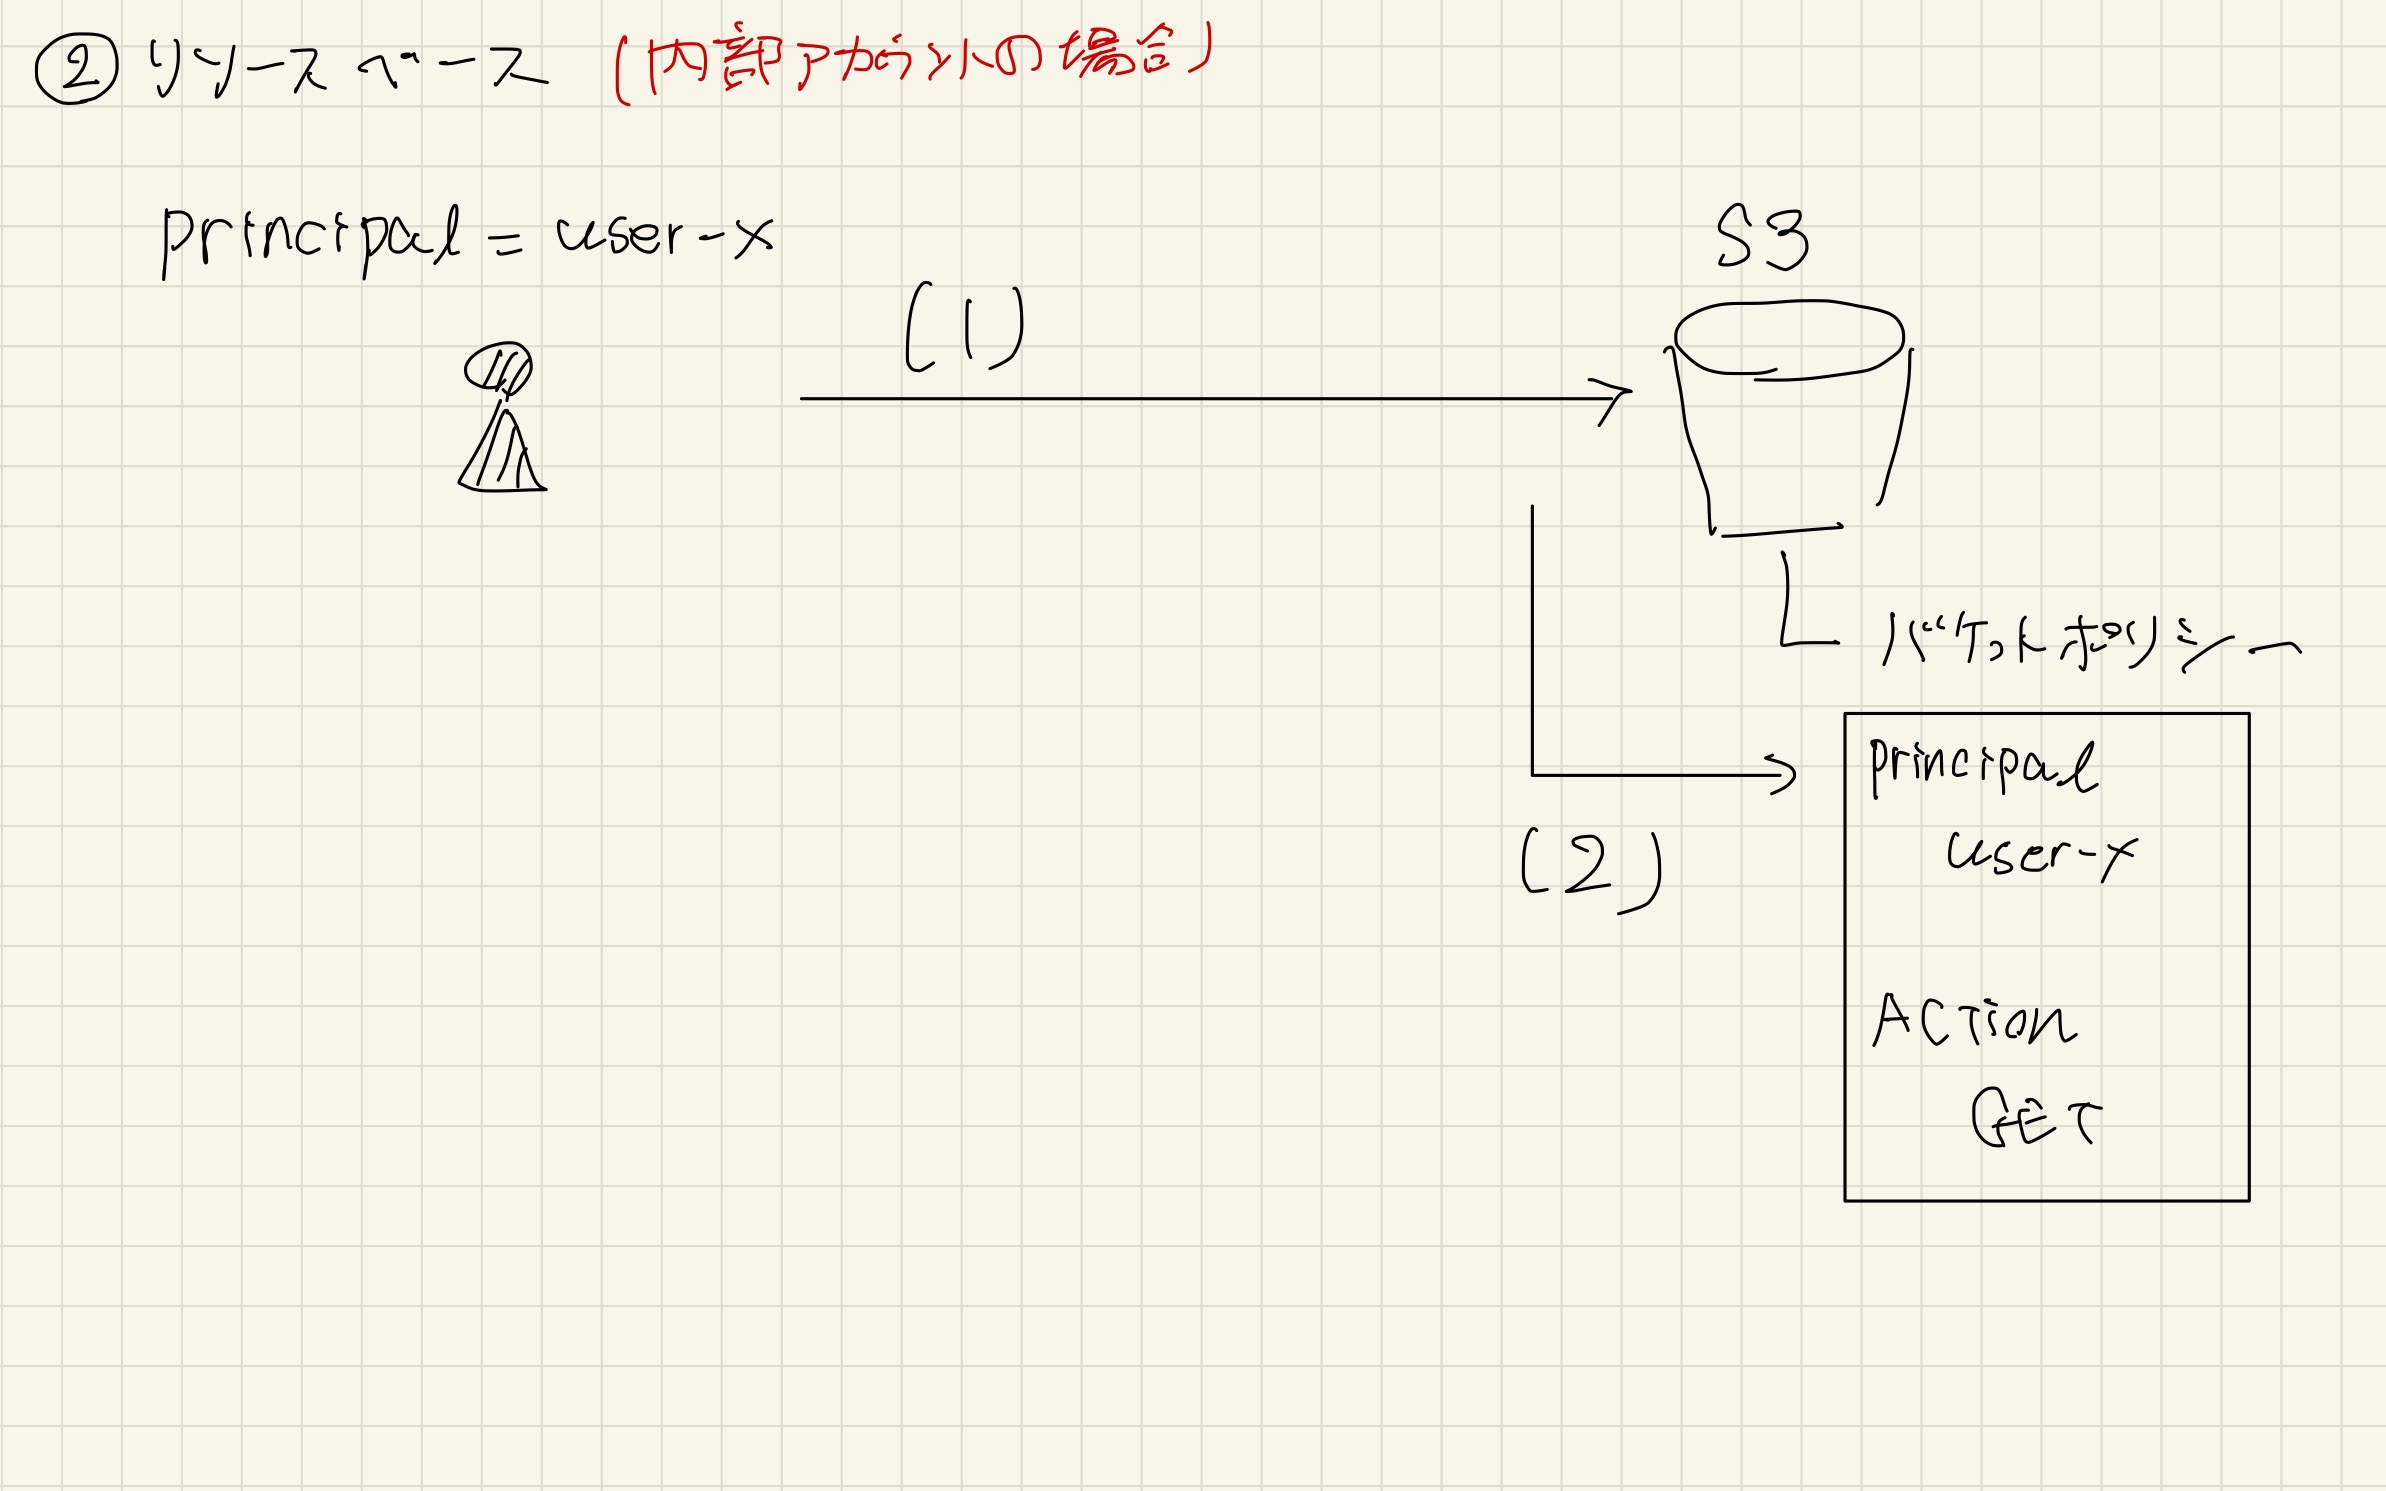 ② リソースベース (内部アカウントの場合)
principal = user-x
S3
(1)
バケットポリシー
principal
user-x
(2)
Action
GET